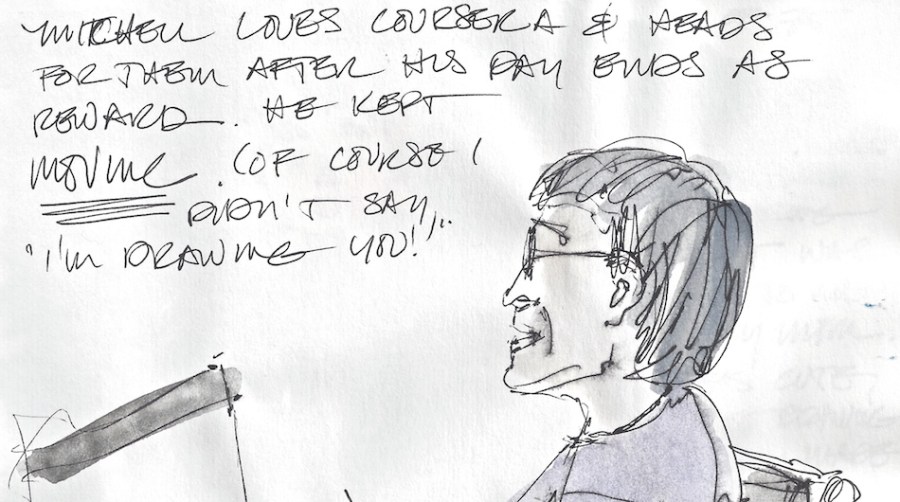 MITCHELL LOVES COURSERA & HEADS
FOR THEM AFTER HIS DAY ENDS AS
REWARD. HE KEPT
MOVING. (OF COURSE I
DIDN'T SAY,
"I'M DRAWING YOU!"..